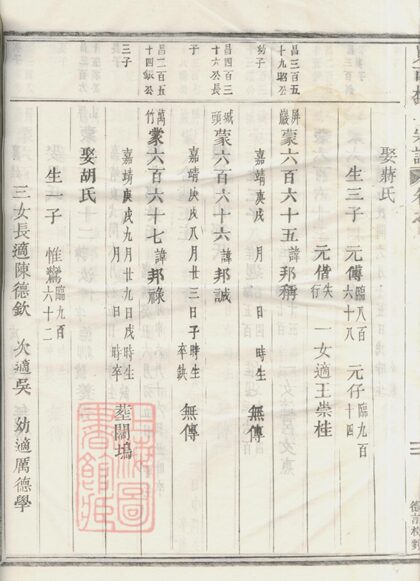 娶蔣氏
生三子 元傳臨八百六十八 元仔臨九百十四
元僭失行 一女適王崇桂
昌三百五十九昭公幼子
屏巖 蒙六百六十五 諱邦稱
嘉靖庚戌 月 日 時生 無傳
昌四百三十六公長子
城頭 蒙六百六十六 諱邦誠
嘉靖庚戌八月廿三日子時生 卒缺 無傳
昌二百五十四銀公三子
萬竹 蒙六百六十七 諱邦祿
嘉靖庚戌九月廿九日戌時生 月 日 時卒 葬闊塢
娶胡氏
生一子 惟鶩臨九百六十二
三女長適陳德欽 次適吳 幼適厲德學